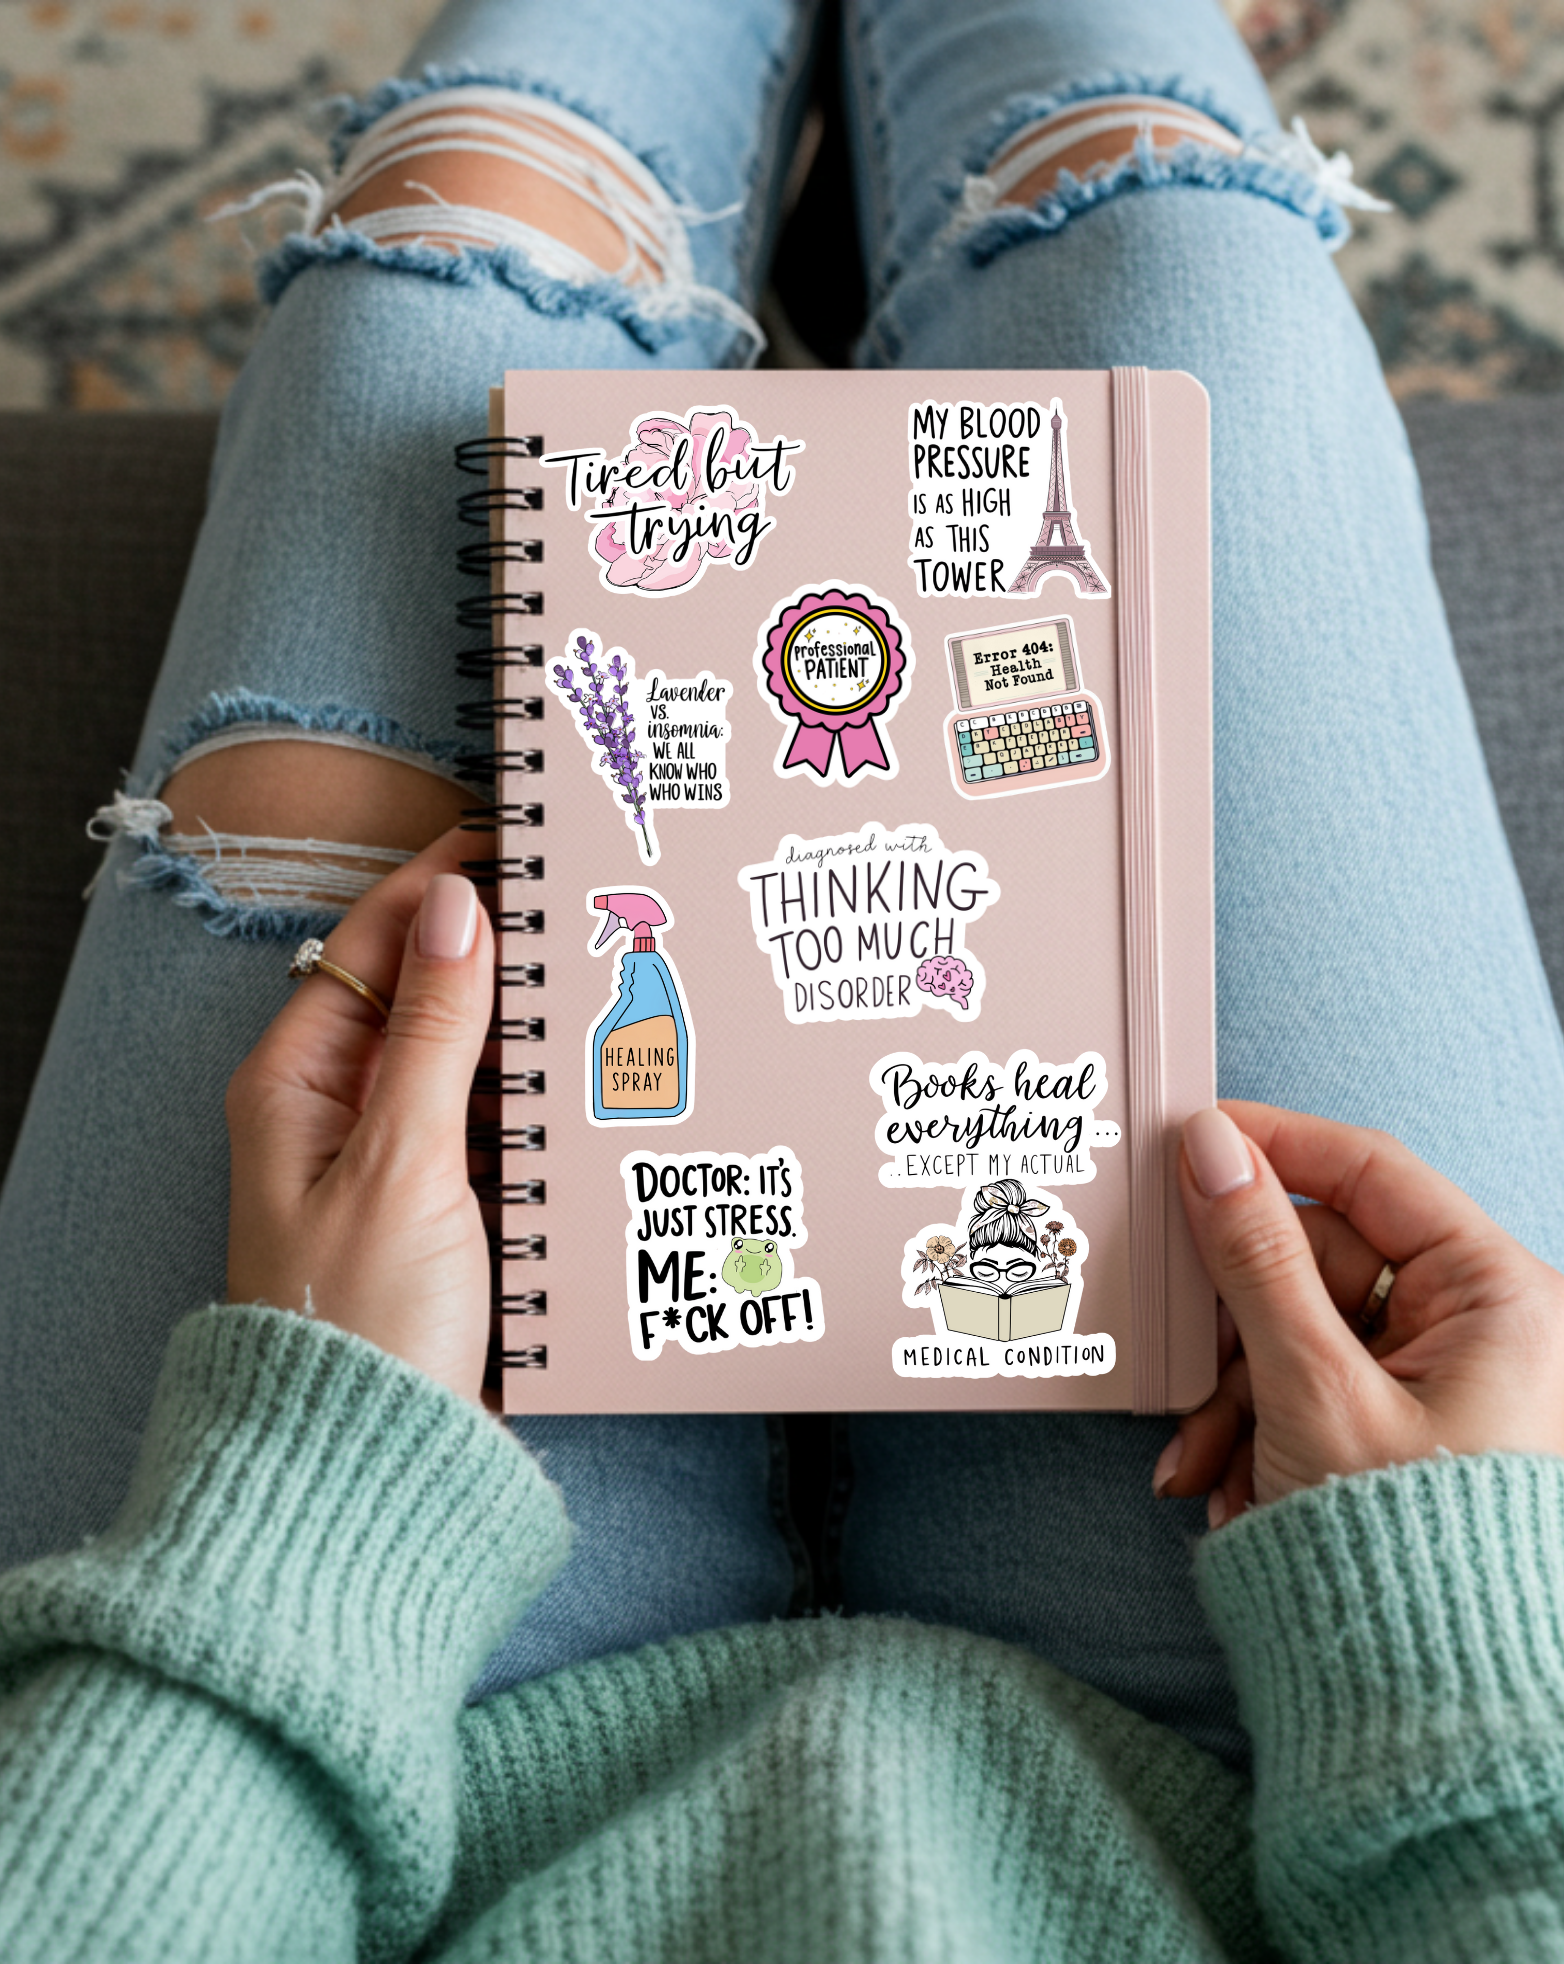 Tired but
trying
MY BLOOD
PRESSURE
IS AS HIGH
AS THIS
TOWER
Lavender
VS.
insomnia:
WE ALL
KNOW WHO
WHO WINS
professional
PATIENT
Error 404:
Health
Not Found
diagnosed with
THINKING
TOO MUCH
DISORDER
HEALING
SPRAY
Books heal
everything ...
..EXCEPT MY ACTUAL
MEDICAL CONDITION
DOCTOR: IT'S
JUST STRESS.
ME:
F*CK OFF!